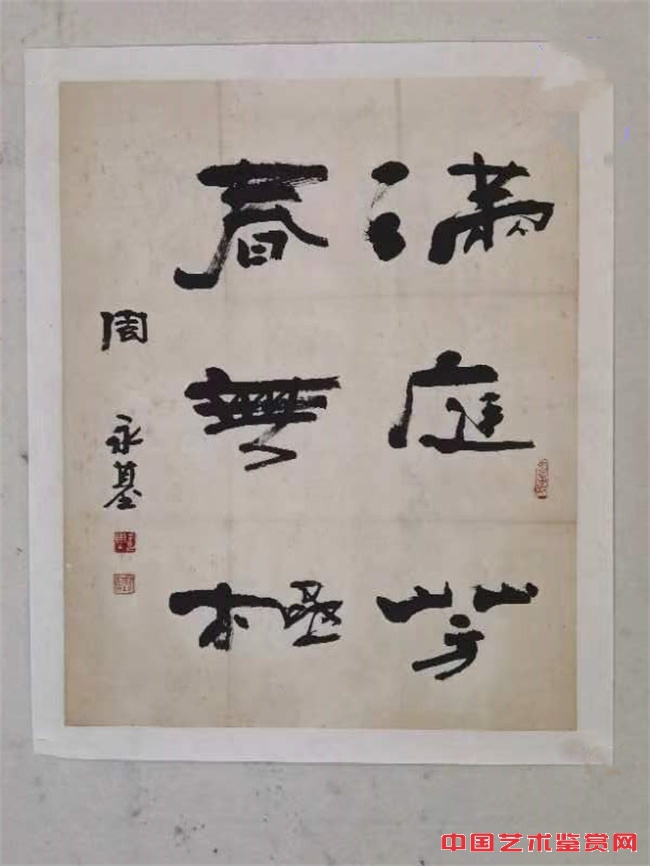 滿庭芳
春無極
周永基
中国艺术鉴赏网